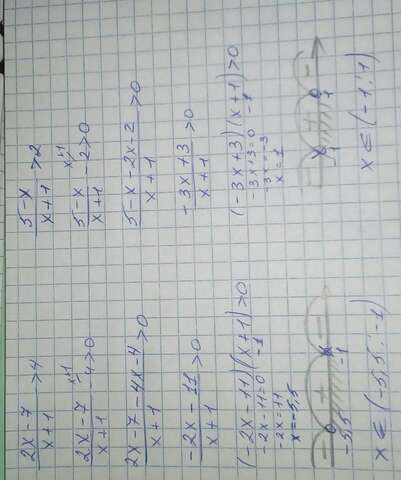 (2x-7)/(x+1) > 4
(2x-7)/(x+1) - 4^{x+1} > 0
(2x-7-4x-4)/(x+1) > 0
(-2x-11)/(x+1) > 0
(-2x-11)(x+1) > 0
-2x-11=0 -1
-2x=11
x=-5,5
- + -
-5,5 -1
x ∈ (-5,5; -1)
(5-x)/(x+1) > 2
(5-x)/(x+1) - 2^{x+1} > 0
(5-x-2x-2)/(x+1) > 0
(-3x+3)/(x+1) > 0
(-3x+3)(x+1) > 0
-3x+3=0 -1
-3x=-3
x=1
- + -
-1 1
x ∈ (-1; 1)